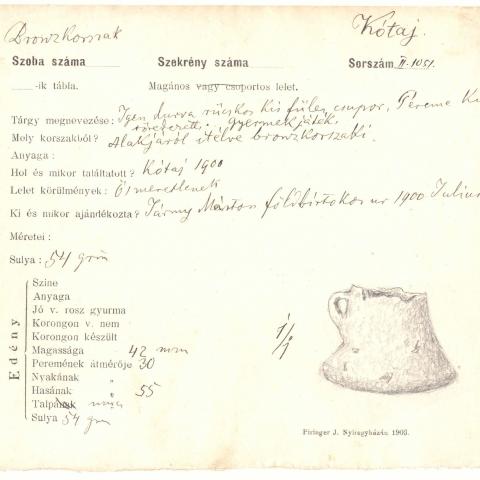 Bronzkorszak
Kótaj.
Szoba száma
Szekrény száma
Sorszám II-1051.
-ik tábla.
Magános vagy csoportos lelet.
Tárgy megnevezése: Igen durva rücskös kis füles csupor, Pereme
töredezett. gyermekjáték.
Mely korszakból? Alakjáról itélve bronzkorszaki.
Anyaga :
Hol és mikor találtatott? Kótaj 1900
Lelet körülmények: Ösmeretlenek
Ki és mikor ajándékozta? Jármy Márton földbirtokos ur 1900 Julius
Méretei :
Sulya : 54 grm
Edény
Szine
Anyaga
Jó v. rosz gyurma
Korongon v. nem
Korongon készült
Magassága 42 mm
Peremének átmérője 30
Nyakának "
Hasának " 55
Talpának
Sulya 54 grm
1/1
Piringer J. Nyiregyházán 1903.